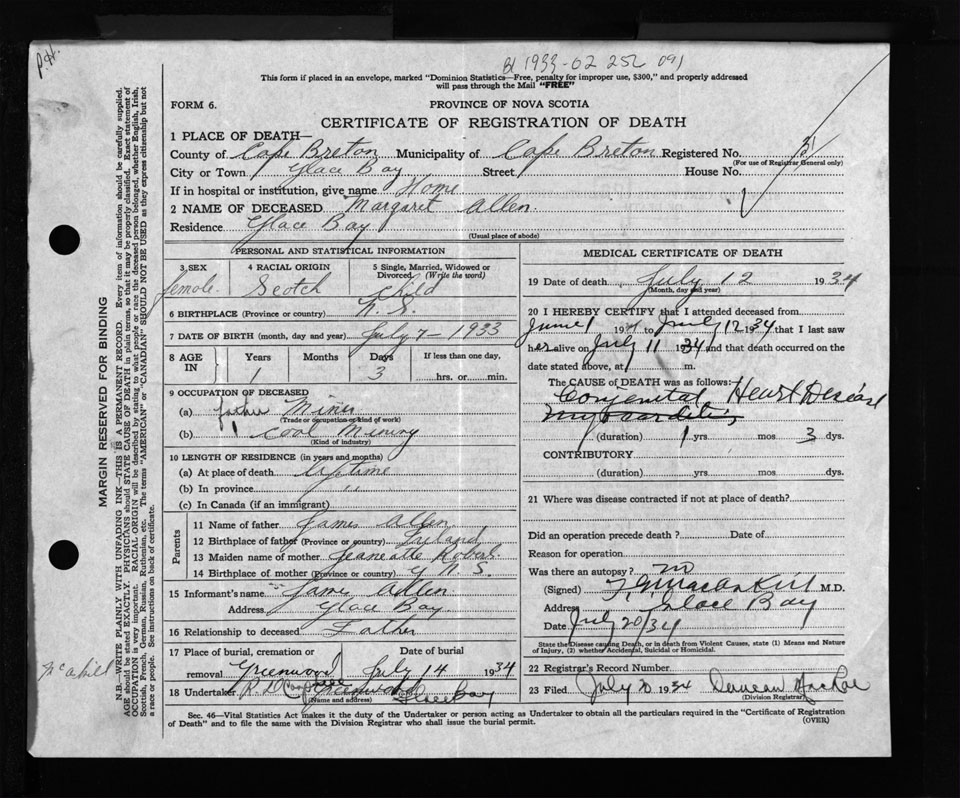 P.H.
1933-02 252 091
This form if placed in an envelope, marked "Dominion Statistics—Free, penalty for improper use, $300," and properly addressed
will pass through the Mail "FREE"
FORM 6.
PROVINCE OF NOVA SCOTIA
CERTIFICATE OF REGISTRATION OF DEATH
1 PLACE OF DEATH—
County of Cape Breton Municipality of Cape Breton Registered No.
(For use of Registrar General only)
City or Town Glace Bay Street House No.
If in hospital or institution, give name Home
2 NAME OF DECEASED Margaret Allen
Residence Glace Bay
(Usual place of abode)
PERSONAL AND STATISTICAL INFORMATION
3 SEX 4 RACIAL ORIGIN 5 Single, Married, Widowed or Divorced (Write the word)
female Scotch child
6 BIRTHPLACE (Province or country) N. S.
7 DATE OF BIRTH (month, day and year) July 7 - 1933
8 AGE IN Years Months Days If less than one day,
1 3 hrs. or min.
9 OCCUPATION OF DECEASED
(a) father Miner
(Trade or occupation or kind of work)
(b) Coal Mining
(Kind of industry)
10 LENGTH OF RESIDENCE (in years and months)
(a) At place of death Lifetime
(b) In province "
(c) In Canada (if an immigrant)
Parents
11 Name of father James Allen
12 Birthplace of father (Province or country) Ireland
13 Maiden name of mother Jeaneatte Robert
14 Birthplace of mother (Province or country) N. S.
15 Informant's name James Allen
Address Glace Bay
16 Relationship to deceased Father
17 Place of burial, cremation or removal Greenwood Date of burial July 14 1934
18 Undertaker Glace Bay
(Name and address)
MEDICAL CERTIFICATE OF DEATH
19 Date of death July 12 1934
(Month, day and year)
20 I HEREBY CERTIFY that I attended deceased from
June 1 19 to July 12 1934 that I last saw
her alive on July 11 1934 and that death occurred on the
date stated above, at m.
The CAUSE of DEATH was as follows:
Congenital Heart Disease
Myocarditis
(duration) 1 yrs. mos 3 dys.
CONTRIBUTORY
(duration) yrs. mos. dys.
21 Where was disease contracted if not at place of death?
Did an operation precede death? Date of
Reason for operation
Was there an autopsy? no
(Signed) M.D.
Address Glace Bay
Date July 20/34
State the Disease causing Death, or in death from Violent Causes, state (1) Means and Nature
of Injury, (2) whether Accidental, Suicidal or Homicidal.
22 Registrar's Record Number
23 Filed July 20 1934 Duncan MacRae
(Division Registrar)
Sec. 46—Vital Statistics Act makes it the duty of the Undertaker or person acting as Undertaker to obtain all the particulars required in the "Certificate of Registration
of Death" and to file the same with the Division Registrar who shall issue the burial permit.
(OVER)
MARGIN RESERVED FOR BINDING
N.B.—WRITE PLAINLY WITH UNFADING INK—THIS IS A PERMANENT RECORD. Every item of information should be carefully supplied.
AGE should be stated EXACTLY. PHYSICIANS should STATE CAUSE OF DEATH in plain terms, so that it may be properly classified. Exact statement of
OCCUPATION is very important. RACIAL ORIGIN will be described by stating to what people or race the deceased person belonged, whether English, Irish,
Scottish, French, German, Russian, Ruthenian, etc. The terms "AMERICAN" or "CANADIAN" SHOULD NOT BE USED as they express citizenship but not
a race or people. See instructions on back of certificate.